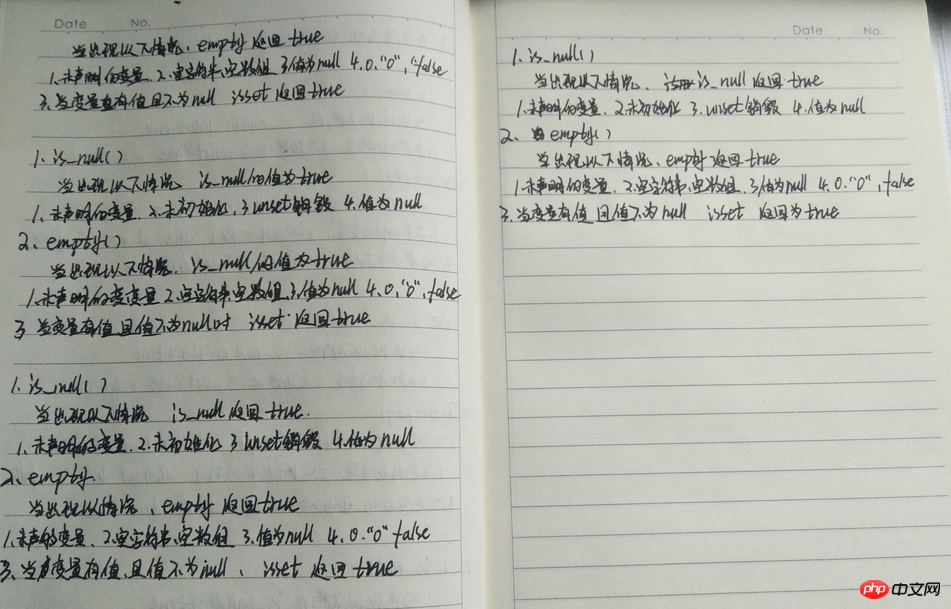 Date No.
当出现以下情况、empty 返回 true
1.未声明的变量、2.空字符串、空数组 3.值为null 4.0."0",false
3.当变量有值且不为null isset返回true
1.is_null()
当出现以下情况 is_null/的值为true
1.未声明的变量、2.未初始化、3.unset销毁 4.值为null
2、empty()
当出现以下情况、is_null/的值为true
1.未声明的变变量 2.空字符串、空数组、3.值为null 4.0,"0",false
3 当变量有值、且值不为null时 isset 返回true
1.is_null()
当出现以下情况 is_null 返回 true.
1、未声明的变量、2.未初始化 3 unset销毁 4.值为 null
2、empty.
当出现以情况、empty 返回true
1.未声的变量、2.空字符串、空数组 3.值为null 4.0."0" false
3、当变量有值、且值不为null、isset 返回true
Date No.
1.is_null()
当出现以下情况、is_null 返回true
1.未声明的变量、2.未初始化 3.unset销毁 4.值为 null
2、empty()
当出现以下情况、empty 返回 true
1.未声明的变量、2.空字符串、空数组、3.值为null 4.0."0",false
3.当变量有值 且值不为 null isset 返回为true
php 中文网